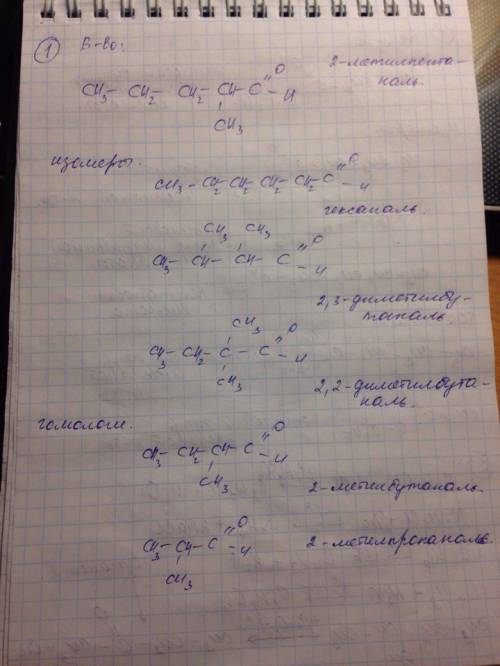 1 В-во:
CH3 - CH2 - CH2 - CH - C
=O
- H
CH3
2-метилпента-
наль.
изомеры.
CH3 - CH2 - CH2 - CH2 - CH2 - C
=O
- H
гексаналь.
CH3 CH3
CH3 - CH - CH - C
=O
- H
2,3-диметилбу-
таналь
CH3
CH3 - CH2 - C - C
=O
- H
CH3
2,2-диметилбута-
наль.
гомологи.
CH3 - CH2 - CH - C
=O
- H
CH3
2-метилбутаналь.
CH3 - CH - C
=O
- H
CH3
2-метилпропаналь.